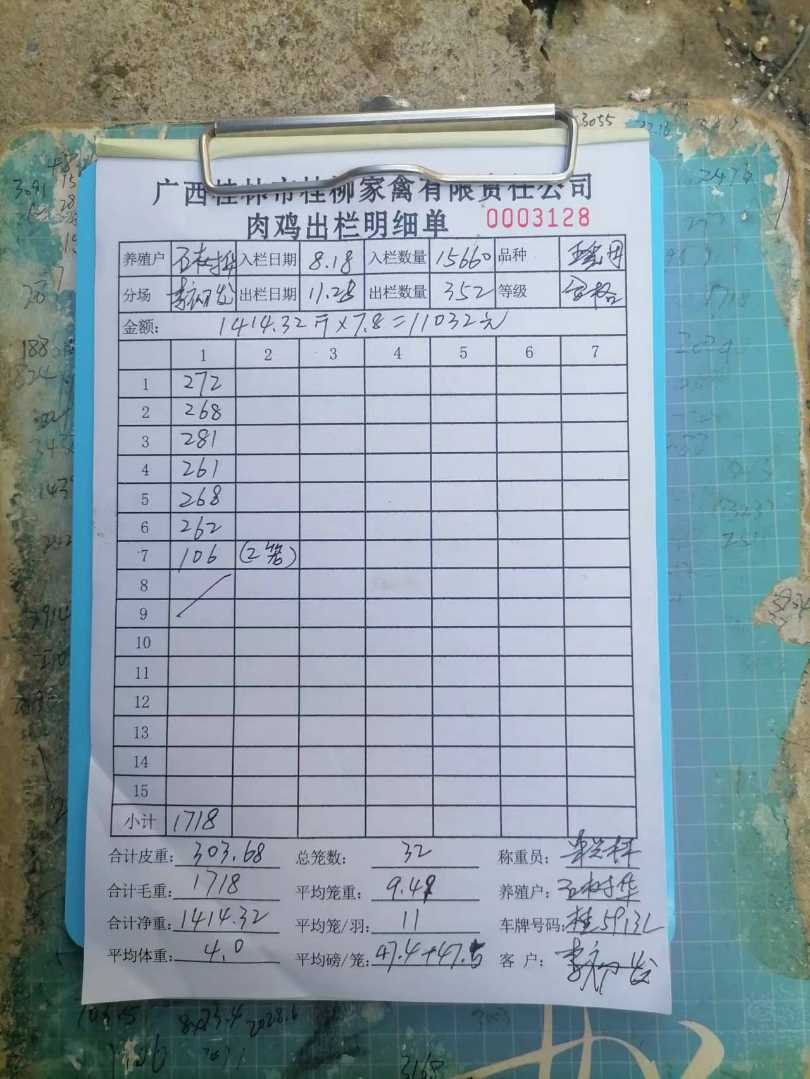 广西桂林市桂柳家禽有限责任公司
肉鸡出栏明细单 0003128
养殖户 石树华 入栏日期 8.18 入栏数量 15660 品种
分场 出栏日期 11.25 出栏数量 352 等级 合格
金额: 1414.32斤×7.8=11032元
1 2 3 4 5 6 7
1 272
2 268
3 281
4 261
5 268
6 262
7 106 (2笼)
8
9
10
11
12
13
14
15
小计 1718
合计皮重: 303.68 总笼数: 32 称重员:
合计毛重: 1718 平均笼重: 9.49 养殖户: 石树华
合计净重: 1414.32 平均笼/羽: 11 车牌号码: 桂5913L
平均体重: 4.0 平均磅/笼: 47.4+47.5 客户: